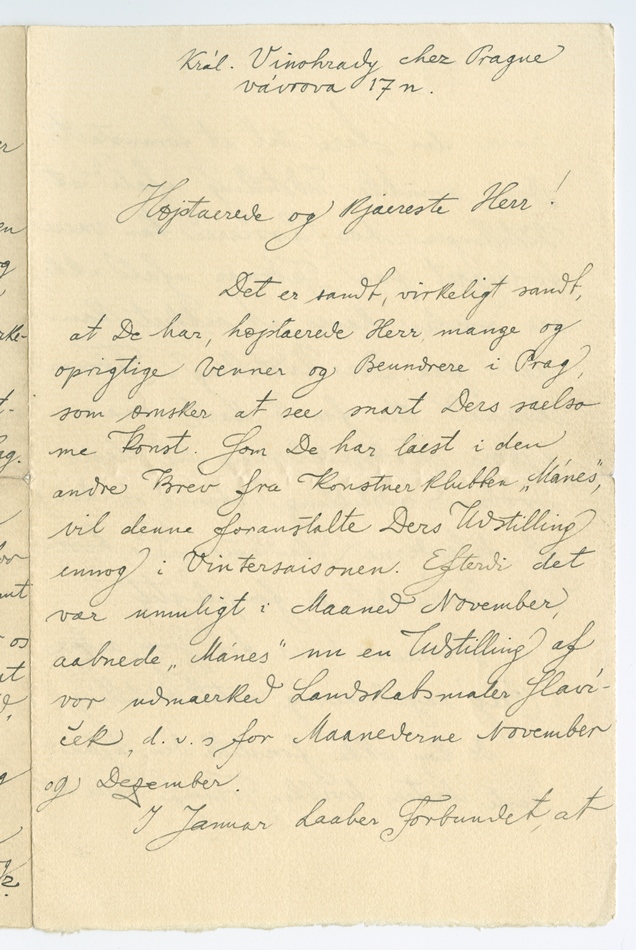 Král. Vinohrady chez Prague
vávrova 17 n.
Højtaerede og kjaereste Herr!
Det er sandt, virkeligt sandt,
at De har, højtaerede Herr mange og
oprigtige Venner og Beundrere i Prag,
som ønsker at see snart Ders saelso
me Konst. Som De har laest i den
andre Brev fra Konstnerklubben „Mánes",
vil denne foranstalte Ders Udstilling
ennog i Vintersaisonen. Efterdi det
var umuligt i Maaned November,
aabnede „Mánes" nu en Udstilling af
vor udmaerked Landskabsmaler Slaví-
ček, d. v. s for Maanederne November
og Dezember.
I Januar Laaber Forbundet, at